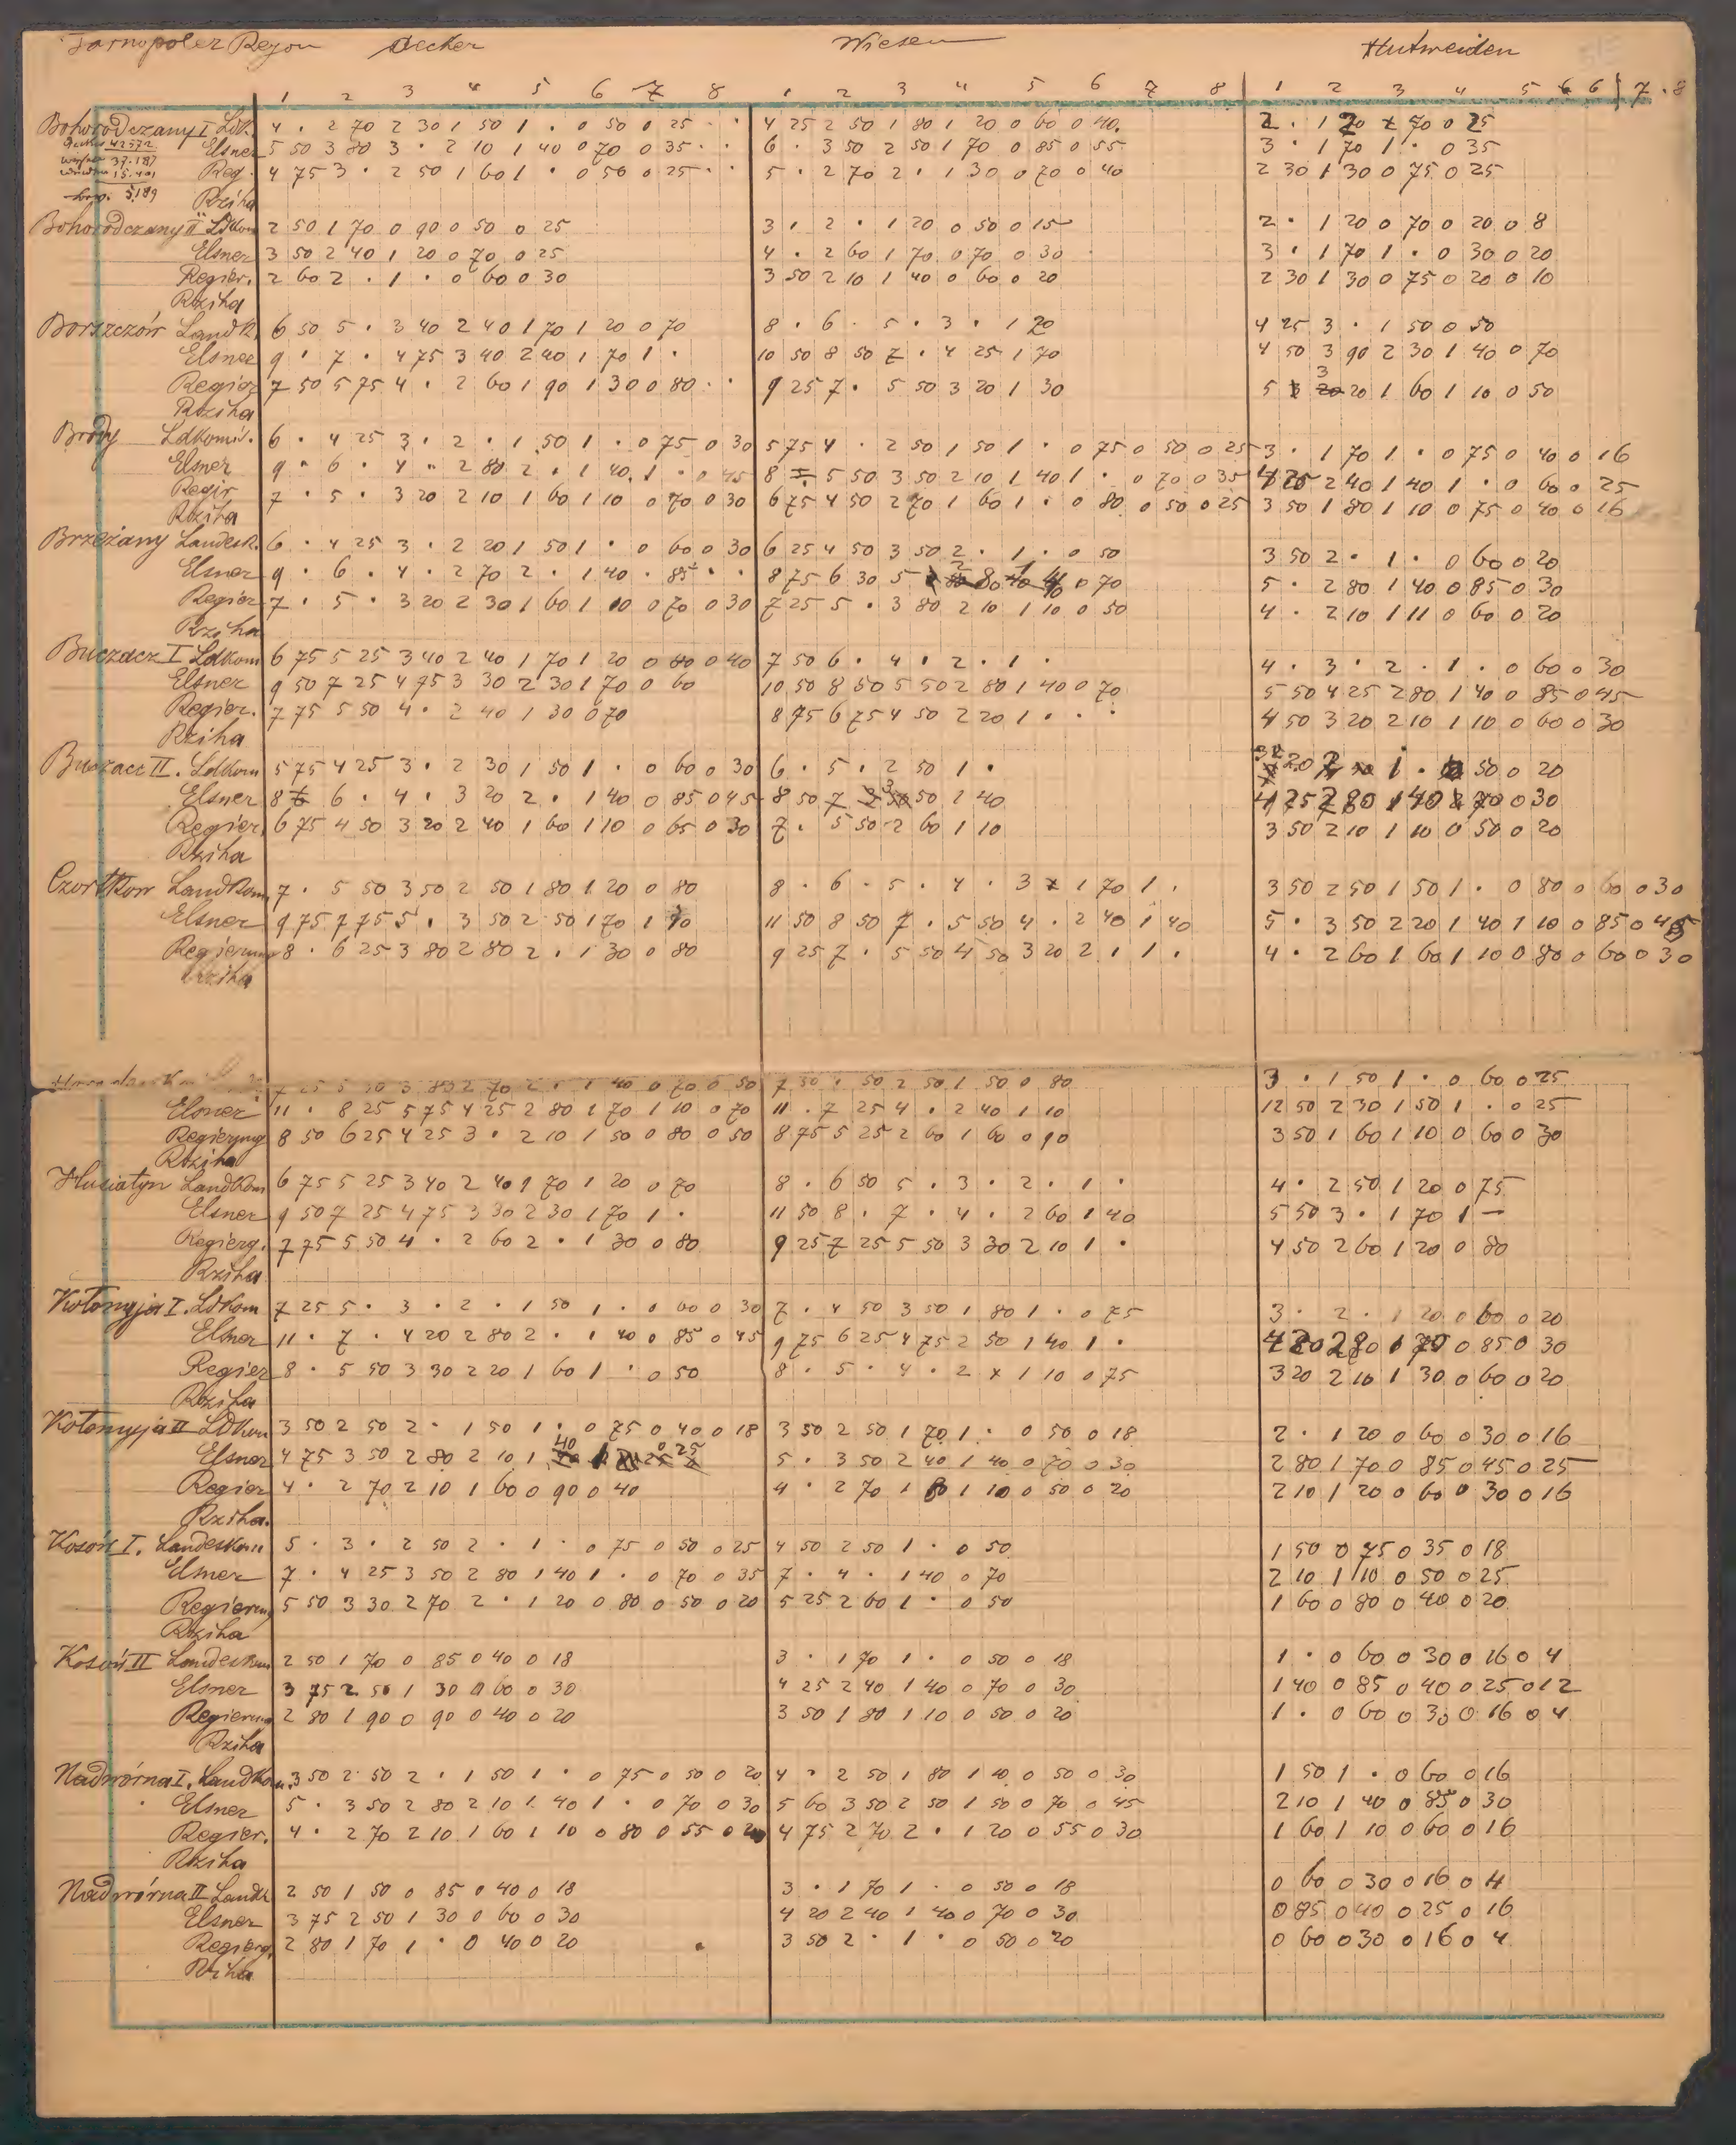 Tarnopoler Rejon Aecker Wiesen Hutweiden
1 2 3 4 5 6 7 8 1 2 3 4 5 6 7 8 1 2 3 4 5 6 6 7 . 8
Bohorodczany I Ldk. 4 . 2 70 2 30 1 50 1 . 0 50 0 25 . . 4 25 2 50 1 80 1 20 0 60 0 40. 2 . 1 20 70 0 25
42572 Elsner 5 50 3 80 3 . 2 10 1 40 0 70 0 35 . . 6 . 3 50 2 50 1 70 0 85 0 55 3 . 1 70 1 . 0 35
37.187
15.401 Reg. 4 75 3 . 2 50 1 60 1 . 0 50 0 25 . . 5 . 2 70 2 . 1 30 0 70 0 40 2 30 1 30 0 75 0 25
5.189 Rziha
Bohorodczany II Ldkom 2 50 1 70 0 90 0 50 0 25 3 . 2 . 1 20 0 50 0 15 2 . 1 20 0 70 0 20 0 8
Elsner 3 50 2 40 1 20 0 70 0 25 4 . 2 60 1 70 0 70 0 30 3 . 1 70 1 . 0 30 0 20
Regier. 2 60 2 . 1 . 0 60 0 30 3 50 2 10 1 40 0 60 0 20 2 30 1 30 0 75 0 20 0 10
Rziha
Borszczów Landk. 6 50 5 . 3 40 2 40 1 70 1 20 0 70 8 . 6 . 5 . 3 . 1 70 4 25 3 . 1 50 0 50
Elsner 9 . 7 . 4 75 3 40 2 40 1 70 1 . 10 50 8 50 7 . 4 25 1 70 4 50 3 90 2 30 1 40 0 70
Regier 7 50 5 75 4 . 2 60 1 90 1 30 0 80 . . 9 25 7 . 5 50 3 20 1 30 5 3 20 1 60 1 10 0 50
Rziha
Brody Ldkomis. 6 . 4 25 3 . 2 . 1 50 1 . 0 75 0 30 5 75 4 . 2 50 1 50 1 . 0 75 0 50 0 25 3 . 1 70 1 . 0 75 0 40 0 16
Elsner 9 . 6 . 4 . 2 80 2 . 1 40 1 . 0 45 8 5 50 3 50 2 10 1 40 1 . 0 70 0 35 2 40 1 40 1 . 0 60 0 25
Regir 7 . 5 . 3 20 2 10 1 60 1 10 0 70 0 30 6 75 4 50 2 70 1 60 1 . 0 80 0 50 0 25 3 50 1 80 1 10 0 75 0 40 0 16
Rziha
Brzeżany Landesk. 6 . 4 25 3 . 2 20 1 50 1 . 0 60 0 30 6 25 4 50 3 50 2 . 1 . 0 50 3 50 2 . 1 . 0 60 0 20
Elsner 9 . 6 . 4 . 2 70 2 . 1 40 . 85 . . 8 75 6 30 5 0 70 5 . 2 80 1 40 0 85 0 30
Regier 7 . 5 . 3 20 2 30 1 60 1 10 0 70 0 30 7 25 5 . 3 80 2 10 1 10 0 50 4 . 2 10 1 11 0 60 0 20
Rziha
Buczacz I Ldkom 6 75 5 25 3 40 2 40 1 70 1 20 0 80 0 40 7 50 6 . 4 . 2 . 1 . 4 . 3 . 2 . 1 . 0 60 0 30
Elsner 9 50 7 25 4 75 3 30 2 30 1 70 0 60 10 50 8 50 5 50 2 80 1 40 0 70 5 50 4 25 2 80 1 40 0 85 0 45
Regier. 7 75 5 50 4 . 2 40 1 30 0 70 8 75 6 75 4 50 2 20 1 . . . 4 50 3 20 2 10 1 10 0 60 0 30
Rziha
Buczacz II. Ldkom 5 75 4 25 3 . 2 30 1 50 1 . 0 60 0 30 6 . 5 . 2 50 1 . 1 . 50 0 20
Elsner 8 6 . 4 . 3 20 2 . 1 40 0 85 0 45 8 50 7 3 50 1 40 4 25 2 80 1 40 70 0 30
Regier. 6 75 4 50 3 20 2 40 1 60 1 10 0 65 0 30 7 . 5 50 2 60 1 10 3 50 2 10 1 10 0 50 0 20
Rziha
Czortków Landkom 7 . 5 50 3 50 2 50 1 80 1 20 0 80 8 . 6 . 5 . 4 . 3 1 70 1 . 3 50 2 50 1 50 1 . 0 80 0 60 0 30
Elsner 9 75 7 75 5 . 3 50 2 50 1 70 1 10 11 50 8 50 7 . 5 50 4 . 2 40 1 40 5 . 3 50 2 20 1 40 1 10 0 85 0 45
Regierung 8 . 6 25 3 80 2 80 2 . 1 30 0 80 9 25 7 . 5 50 4 50 3 20 2 . 1 . 4 . 2 60 1 60 1 10 0 80 0 60 0 30
Rziha
2 70 2 . 1 40 0 70 0 50 7 50 . 50 2 50 1 50 0 80 3 . 1 50 1 . 0 60 0 25
Elsner 11 . 8 25 5 75 4 25 2 80 1 70 1 10 0 70 11 . 7 25 4 . 2 40 1 10 12 50 2 30 1 50 1 . 0 25
Regierung 8 50 6 25 4 25 3 . 2 10 1 50 0 80 0 50 8 75 5 25 2 60 1 60 0 90 3 50 1 60 1 10 0 60 0 30
Rziha
Husiatyn Landkom 6 75 5 25 3 40 2 40 1 70 1 20 0 70 8 . 6 50 5 . 3 . 2 . 1 . 4 . 2 50 1 20 0 75
Elsner 9 50 7 25 4 75 3 30 2 30 1 70 1 . 11 50 8 . 7 . 4 . 2 60 1 40 5 50 3 . 1 70 1 —
Regierg. 7 75 5 50 4 . 2 60 2 . 1 30 0 80 9 25 7 25 5 50 3 30 2 10 1 . 4 50 2 60 1 20 0 80
Rziha
Kołomyja I. Ldkom 7 25 5 . 3 . 2 . 1 50 1 . 0 60 0 30 7 . 4 50 3 50 1 80 1 . 0 75 3 . 2 . 1 20 0 60 0 20
Elsner 11 . 7 . 4 20 2 80 2 . 1 40 0 85 0 45 9 75 6 25 4 75 2 50 1 40 1 . 4 20 2 80 1 70 0 85 0 30
Regier 8 . 5 50 3 30 2 20 1 60 1 . 0 50 8 . 5 . 4 . 2 x 1 10 0 75 3 20 2 10 1 30 0 60 0 20
Rziha
Kołomyja II Ldkom 3 50 2 50 2 . 1 50 1 . 0 75 0 40 0 18 3 50 2 50 1 70 1 . 0 50 0 18 2 . 1 20 0 60 0 30 0 16
Elsner 4 75 3 50 2 80 2 10 1 40 0 25 5 . 3 50 2 40 1 40 0 70 0 30 2 80 1 70 0 85 0 45 0 25
Regier 4 . 2 70 2 10 1 60 0 90 0 40 4 . 2 70 1 8 1 10 0 50 0 20 2 10 1 20 0 60 0 30 0 16
Rziha.
Kosów I. Landeskom 5 . 3 . 2 50 2 . 1 . 0 75 0 50 0 25 4 50 2 50 1 . 0 50 1 50 0 75 0 35 0 18
Elsner 7 . 4 25 3 50 2 80 1 40 1 . 0 70 0 35 7 . 4 . 1 40 0 70 2 10 1 10 0 50 0 25
Regierung 5 50 3 30 2 70 2 . 1 20 0 80 0 50 0 20 5 25 2 60 1 . 0 50 1 60 0 80 0 40 0 20
Rziha
Kosów II Landeskom 2 50 1 70 0 85 0 40 0 18 3 . 1 70 1 . 0 50 0 18 1 . 0 60 0 30 0 16 0 4
Elsner 3 75 2 50 1 30 0 60 0 30 4 25 2 40 1 40 0 70 0 30 1 40 0 85 0 40 0 25 0 12
Regierung 2 80 1 90 0 90 0 40 0 20 3 50 1 80 1 10 0 50 0 20 1 . 0 60 0 30 0 16 0 4
Rziha
Nadwórna I. Landkom. 3 50 2 50 2 . 1 50 1 . 0 75 0 50 0 20 4 . 2 50 1 80 1 10 0 50 0 30 1 50 1 . 0 60 0 16
Elsner 5 . 3 50 2 80 2 10 1 40 1 . 0 70 0 30 5 60 3 50 2 50 1 50 0 70 0 45 2 10 1 40 0 85 0 30
Regier. 4 . 2 70 2 10 1 60 1 10 0 80 0 55 0 4 75 2 70 2 . 1 20 0 55 0 30 1 60 1 10 0 60 0 16
Rziha
Nadwórna II Landk 2 50 1 50 0 85 0 40 0 18 3 . 1 70 1 . 0 50 0 18 0 60 0 30 0 16 0 4
Elsner 3 75 2 50 1 30 0 60 0 30 4 20 2 40 1 40 0 70 0 30 0 85 0 40 0 25 0 16
Regierg. 2 80 1 70 1 . 0 40 0 20 3 50 2 . 1 . 0 50 0 20 0 60 0 30 0 16 0 4
Rziha